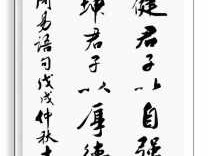 健君子以自强
坤君子以厚德
周易语句戊戌仲秋